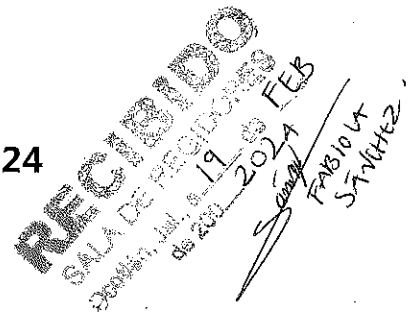 24
RECIBIDO
SALA DE REGIDORES
Ocotlán, Jal., a 19 de FEB
de 200 2024
FABIOLA
SÁNCHEZ.